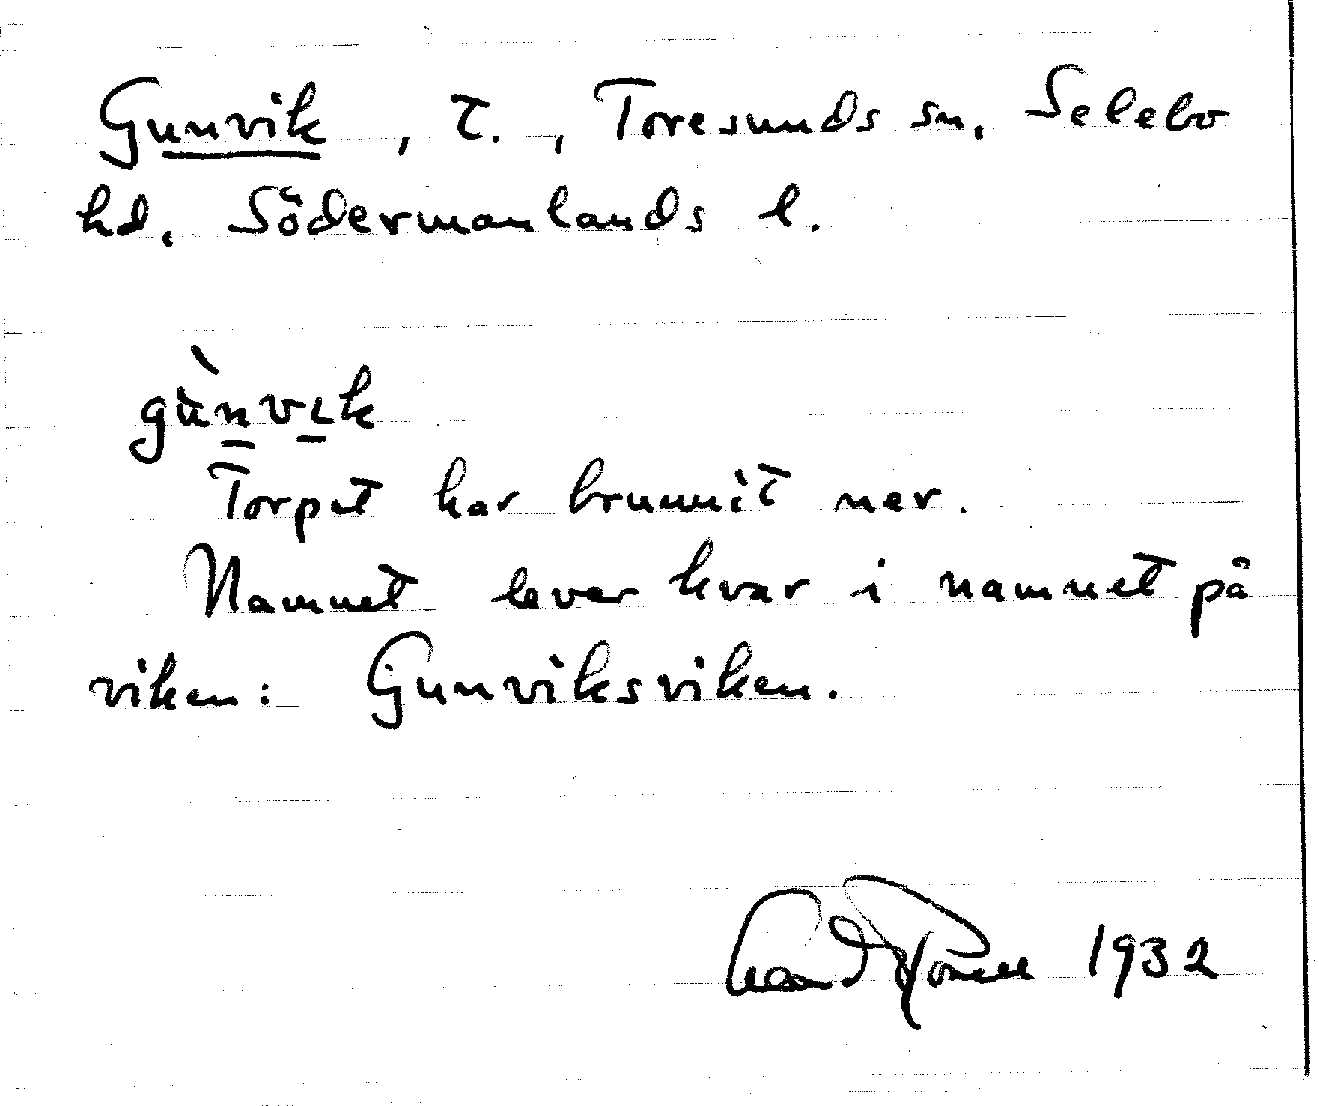 Gunvik, T., Toresunds sn, Selebo
hd. Södermanlands l.
gùnvık
Torpet har brunnit ner.
Namnet lever kvar i namnet på
viken: Gunviksviken.
1932